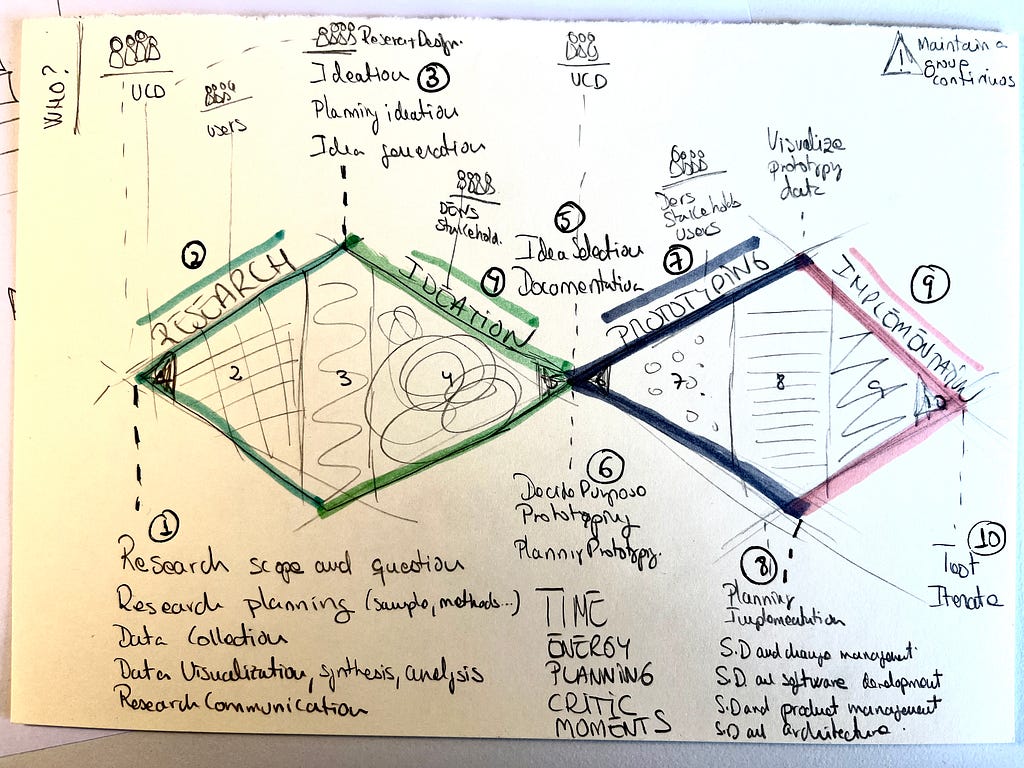 WHO?
UCD
users
Researc+Design.
Ideation 3
Planning ideation
Idea generation
UCD
Maintain a
group
continuos
DEVS
Stakehold.
Devs
stakeholds
users
Visualize
prototypy
data
2
RESEARCH
IDEATION
4
5
Idea Selection
Documentation
7
PROTOTYPING
IMPLEMENTATION
9
1
2
3
4
7
8
9
10
1
Research scope and question
Research planning (sample, methods...)
Data Collection
Data Visualization, synthesis, analysis
Research Communication
6
Decide Purpose
Prototyping
Planning Prototypy.
TIME
ENERGY
PLANNING
CRITIC
MOMENTS
8
Planning
Implementation
S.D and change management
S.D. and software development
S.D and product management
S.D and architecture.
10
Test
Iterate